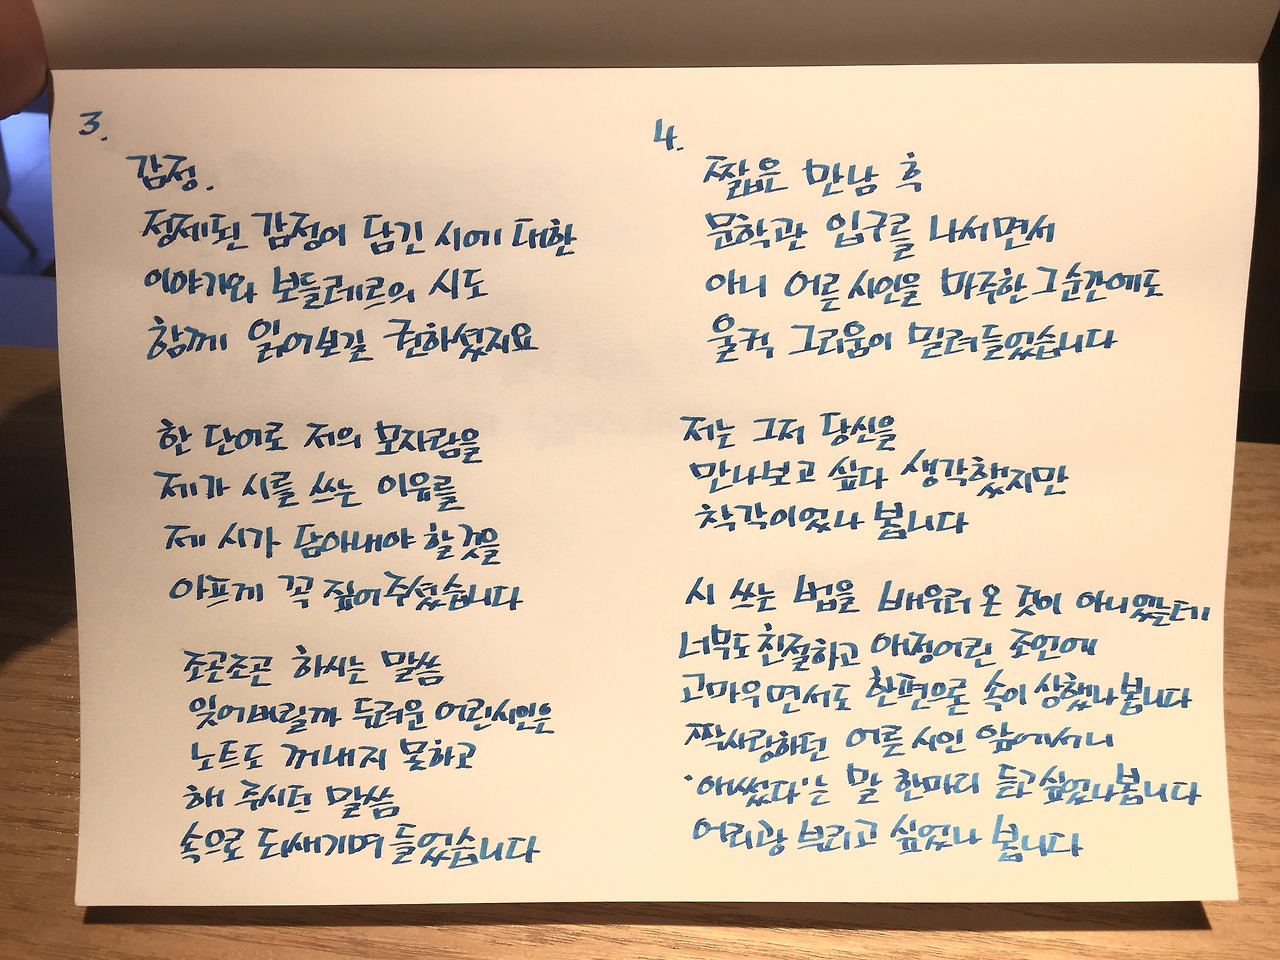 3.
감정.
정제된 감정이 담긴 시에 대한
이야기와 보들레르의 시도
함께 읽어보길 권하셨지요
한 단어로 저의 모자람을
제가 시를 쓰는 이유를
제 시가 담아내야 할 것을
아프게 꼭 짚어주셨습니다
조곤조곤 하시는 말씀
잊어버릴까 두려운 어린시인은
노트도 꺼내지 못하고
해 주시던 말씀
속으로 되새기며 들었습니다
4.
짧은 만남 후
문학관 입구를 나서면서
아니 어른 시인을 마주한 그 순간에도
울컥 그리움이 밀려들었습니다
저는 그저 당신을
만나보고 싶다 생각했지만
착각이었나 봅니다
시 쓰는 법을 배우러 온 것이 아니었는데
너무도 친절하고 애정어린 조언에
고마우면서도 한편으론 속이 상했나봅니다
짝사랑하던 어른 시인 앞에서니
'애썼다'는 말 한마디 듣고싶었나봅니다
어리광 부리고 싶었나 봅니다